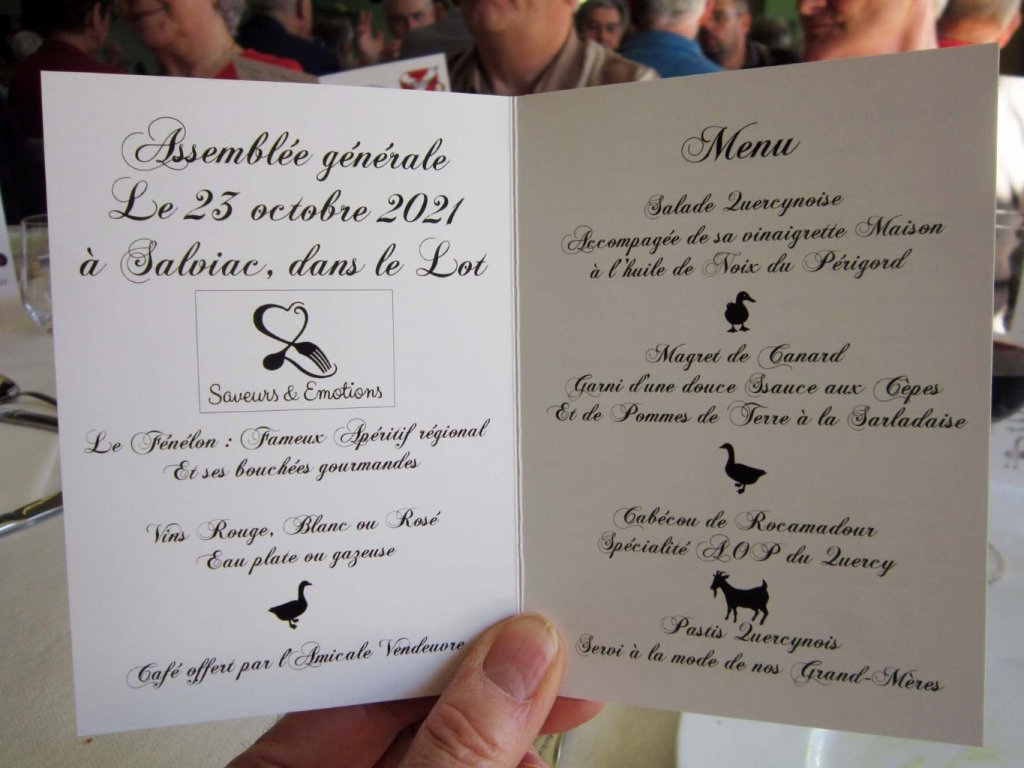 Assemblée générale
Le 23 octobre 2021
à Salviac, dans le Lot
Saveurs & Emotions
Le Fénélon : Fameux Apéritif régional
Et ses bouchées gourmandes
Vins Rouge, Blanc ou Rosé
Eau plate ou gazeuse
Café offert par l'Amicale Vendeuvre
Menu
Salade Quercynoise
Accompagée de sa vinaigrette Maison
à l'huile de Noix du Périgord
Magret de Canard
Garni d'une douce Ssauce aux Cèpes
Et de Pommes de Terre à la Sarladaise
Cabécou de Rocamadour
Spécialité A.O.P du Quercy
Pastis Quercynois
Servi à la mode de nos Grand-Mères